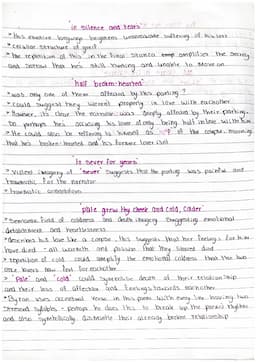 'in silence and tears'
* this emotive language heightens unbearable suffering of his loss
* cellular structure of grief?
* the repetition of this in the final stanza amplifies the secrecy
and sorrow that he's still mourning and unable to move on
'half broken-hearted'
* was only one of them affected by this parting?
* could suggest they weren't properly in love with eachother
* However, its clear the narrator was deeply affected by their parting -
so perhaps he's accusing his lover of only being half in love with him
* He could also be referring to himself as ½ of the couple - meaning
that he's broken-hearted and his former lover isn't
'To sever for years'
* Violent imagery of 'sever' suggests that the parting was painful and
traumatic for the narrator
* traumatic connotations
'pale grew thy cheek and cold, colder'
* Semantic field of coldness and death imagery suggesting emotional
detachment and heartlessness
* describes his love like a corpse. this suggests that her feelings for him
have died - all warmth and passion that they shared died
* repetition of cold could amplify the emotional coldness that the two
once lovers now feel for eachother
* 'Pale' and 'cold' could symbolise death of their relationship
and their loss of affection and feelings towards eachother
* Byron uses accentual verse in this poem with every line having two
stressed syllables - perhaps he does this to break up the poem's rhythm
and also symbolically dismantle their already broken relationship